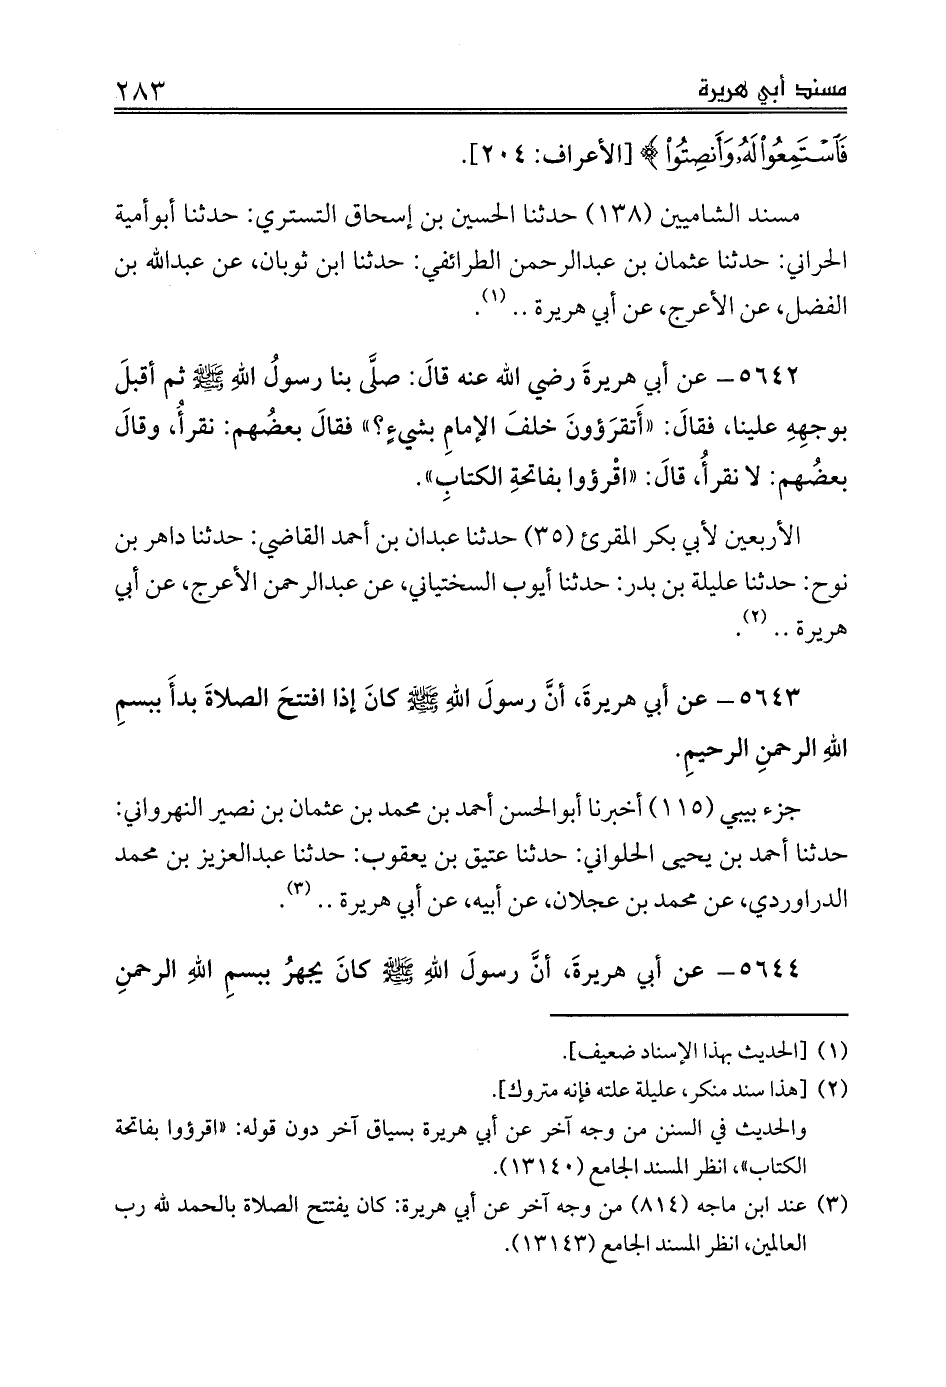 مسند أبي هريرة ٢٨٣
فَاسْتَمِعُوا لَهُ وَأَنصِتُوا ﴾ [الأعراف: ٢٠٤].
مسند الشاميين (١٣٨) حدثنا الحسين بن إسحاق التستري: حدثنا أبوأمية
الحراني: حدثنا عثمان بن عبدالرحمن الطرائفي: حدثنا ابن ثوبان، عن عبدالله بن
الفضل، عن الأعرج، عن أبي هريرة .. (١).
٥٦٤٢ – عن أبي هريرةَ رضي الله عنه قالَ: صلَّى بنا رسولُ اللهِ ﷺ ثم أقبلَ
بوجهِهِ علينا، فقالَ: «أَتقرَؤونَ خلفَ الإمامِ بشيءٍ؟» فقالَ بعضُهم: نقرأُ، وقالَ
بعضُهم: لا نقرأُ، قالَ: «اقْرؤوا بفاتحةِ الكتابِ».
الأربعين لأبي بكر المقرئ (٣٥) حدثنا عبدان بن أحمد القاضي: حدثنا داهر بن
نوح: حدثنا عليلة بن بدر: حدثنا أيوب السختياني، عن عبدالرحمن الأعرج، عن أبي
هريرة .. (٢).
٥٦٤٣ – عن أبي هريرةَ، أنَّ رسولَ اللهِ ﷺ كانَ إذا افتتحَ الصلاةَ بدأَ ببسمِ
اللهِ الرحمنِ الرحيمِ.
جزء بيبي (١١٥) أخبرنا أبوالحسن أحمد بن محمد بن عثمان بن نصير النهرواني:
حدثنا أحمد بن يحيى الحلواني: حدثنا عتيق بن يعقوب: حدثنا عبدالعزيز بن محمد
الدراوردي، عن محمد بن عجلان، عن أبيه، عن أبي هريرة .. (٣).
٥٦٤٤ – عن أبي هريرةَ، أنَّ رسولَ اللهِ ﷺ كانَ يجهرُ ببسمِ اللهِ الرحمنِ
(١) [الحديث بهذا الإسناد ضعيف].
(٢) [هذا سند منكر، عليلة علته فإنه متروك].
والحديث في السنن من وجه آخر عن أبي هريرة بسياق آخر دون قوله: «اقرؤوا بفاتحة
الكتاب»، انظر المسند الجامع (١٣١٤٠).
(٣) عند ابن ماجه (٨١٤) من وجه آخر عن أبي هريرة: كان يفتتح الصلاة بالحمد لله رب
العالمين، انظر المسند الجامع (١٣١٤٣).